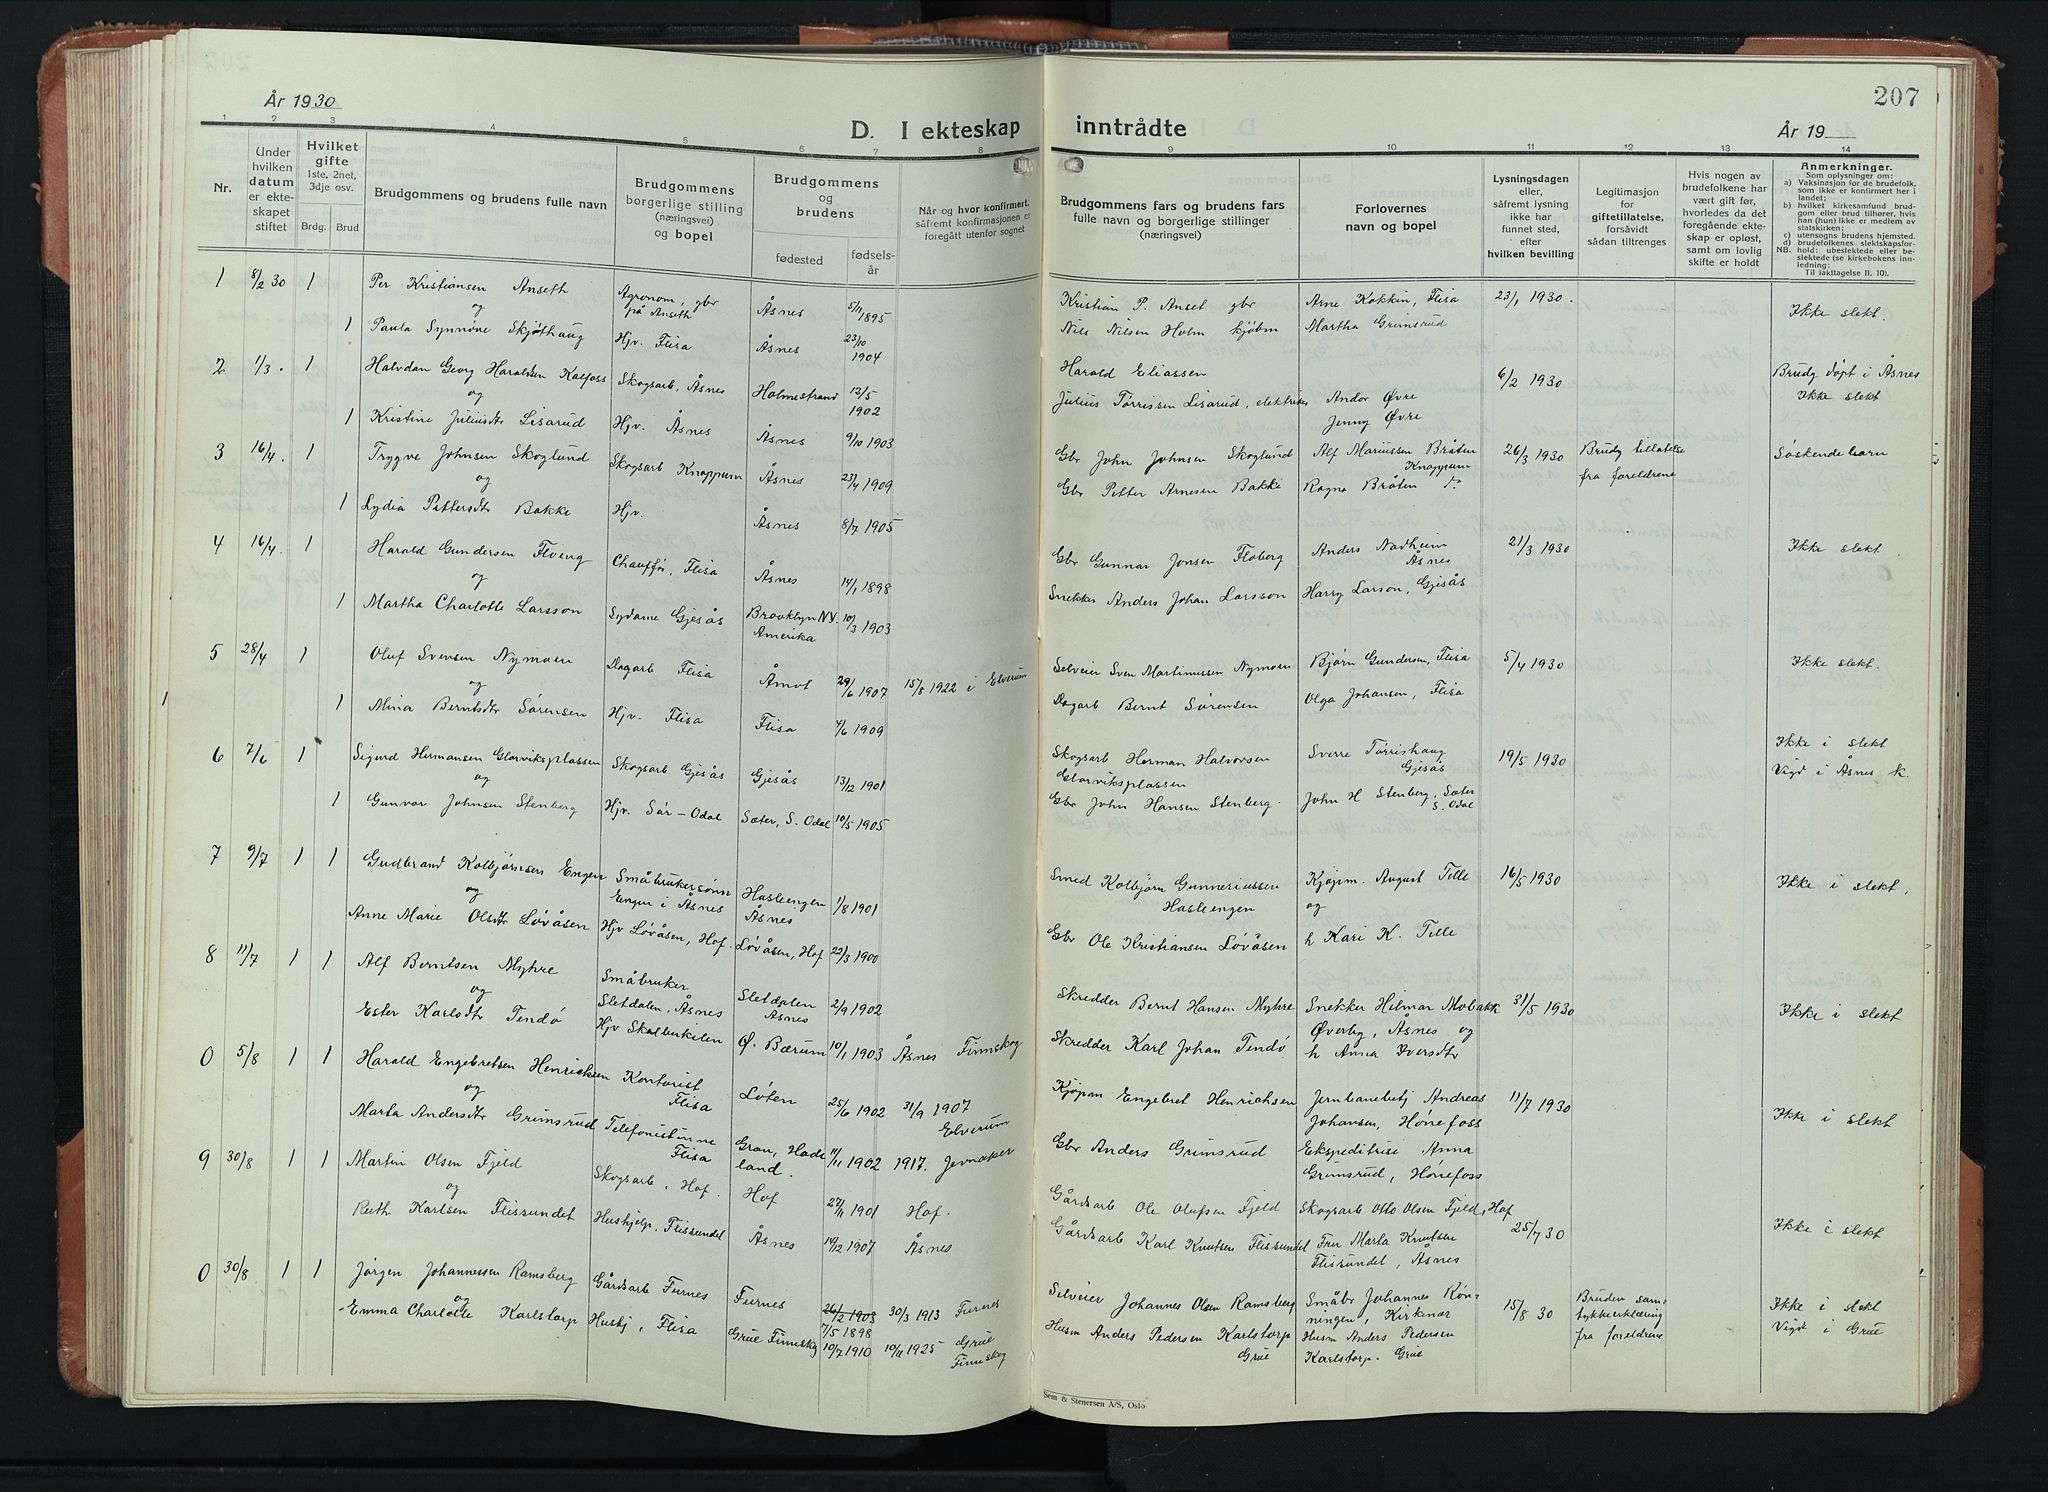 207
År 1930
D. I ekteskap inntrådte
År 19
1 2 3 4 5 6 7 8 9 10 11 12 13 14
Nr.
Under hvilken datum er ekteskapet stiftet
Hvilket gifte 1ste, 2net, 3dje osv.
Brdg. Brud
Brudgommens og brudens fulle navn
Brudgommens borgerlige stilling (næringsvei) og bopel
Brudgommens og brudens
fødested
fødselsår
Når og hvor konfirmert, såfremt konfirmasjonen er foregått utenfor sognet
Brudgommens fars og brudens fars fulle navn og borgerlige stillinger (næringsvei)
Forlovernes navn og bopel
Lysningsdagen eller, såfremt lysning ikke har funnet sted, efter hvilken bevilling
Legitimasjon for giftetillatelse, forsåvidt sådan tiltrenges
Hvis nogen av brudefolkene har vært gift før, hvorledes da det foregående ekteskap er opløst, samt om lovlig skifte er holdt
Anmerkninger.
Som oplysninger om:
a) Vaksinasjon for de brudefolk, som ikke er konfirmert her i landet;
b) hvilket kirkesamfund brudgom eller brud tilhører, hvis han (hun) ikke er medlem av statskirken;
c) utensogns brudens hjemsted.
d) brudefolkenes slektskapsforhold: ubeslektede eller beslektede (se kirkebokens innledning;
NB.
Til iakttagelse II. 10).
1 8/2 30 1 Per Kristiansen Anseth Agronom, gbr på Anseth Åsnes 5/11 1895 Kristian P. Anset gbr Arne Kokkin, Flisa 23/1 1930. Ikke slekt.
og
1 Paula Synnøve Skjøthaug Hjv. Flisa Åsnes 23/10 1904 Nils Nilsen Holm kjøbm Martha Grimsrud
2 1/3. 1 Halvdan Georg Haraldsen Kalfoss Skogsarb, Åsnes Holmestrand 12/5 1902 Harald Eliassen 6/2 1930 Brudg døpt i Åsnes
og
1 Kristine Juliusdtr Lisarud Hjv. Åsnes Åsnes 9/10 1903 Julius Tørrissen Lisarud, elektriker Andor Øvre Jenny Øvre Ikke slekt
3 16/4. 1 Trygve Johnsen Skoglund Skogsarb Knappum Åsnes 23/4 1909 Gbr John Johnsen Skoglund Alf Mariussen Bråten Knappum 26/3 1930 Brudg tillatelse fra foreldrene Søskendebarn
og
1 Lydia Pettersdtr Bakke Hjv. Åsnes 8/7 1905 Gbr Petter Arnesen Bakke Ragna Bråten do
4 16/4. 1 Harald Gundersen Floeng Chauffør, Flisa Åsnes 14/1 1898 Gbr Gunnar Jonsen Floberg Anders Nadheim Åsnes 21/3 1930 Ikke slekt.
og
1 Martha Charlotte Larsson Sydame Gjesås Brooklyn N.Y. Amerika 10/3 1903 Snekker Anders Johan Larsson Harry Larson, Gjesås
5 28/4 1 Oluf Svensen Nymoen Dagarb Flisa Åmot 29/6 1907 15/8 1922 i Elverum Selveier Sven Martinussen Nymoen Bjørn Gundersen, Flisa 5/4 1930 Ikke slekt.
og
1 Alina Berntsdtr Sørensen Hjv. Flisa Flisa 4/6 1909 Dagarb Bernt Sørensen Olga Johansen, Flisa
6 7/6 1 Sigurd Hermansen Glorviksplassen Skogsarb Gjesås Gjesås 13/12 1901 Skogsarb Herman Halvorsen Glorviksplassen Sverre Tørrishaug Gjesås 19/5 1930 Ikke i slekt
og
1 Gunvor Johnsen Stenberg Hjv. Sør-Odal Sæter, S. Odal 10/5 1905 Gbr John Hansen Stenberg. John H Stenberg, Sæter S. Odal Vigd i Åsnes k.
7 9/7 1 1 Gudbrand Kolbjørnsen Engen Småbrukersønn Engen i Åsnes Hasleengen Åsnes 1/8 1901 Smed Kolbjørn Gunneriussen Hasleengen Kjøpm. August Telle 16/5 1930 Ikke i slekt.
og
Anne Marie Olsdtr Løvåsen Hjv Løvåsen, Hof. Løvåsen, Hof 22/3 1900 Gbr Ole Kristiansen Løvåsen og h Kari K. Telle
8 11/7 1 1 Alf Berntsen Myhre Småbruker Sletdalen, Åsnes Sletdalen Åsnes 2/9 1902 Skredder Bernt Hansen Myhre Snekker Hilmar Mobakk 31/5 1930 Ikke i slekt
og
Ester Karlsdtr Tendø Hjv Skalbukilen Ø. Bærum 10/1 1903 Åsnes Finnskog Skredder Karl Johan Tendø Øverby, Åsnes og h Anna Iversdtr
0 5/8 1 1 Harald Engebretsen Henrichsen Kontorist Flisa Løten 25/6 1902 31/9 1907 Elverum Kjøpm Engebret Henrichsen Jernbanebetj Andreas Johansen, Hønefoss 11/7 1930 Ikke i slekt
og
Marta Andersdtr Grimsrud Telefonistinne Flisa Gran, Hadeland. 11/11 1902 1917. Jevnaker Gbr Anders Grimsrud Ekspeditrise Anna Grimsrud, Hønefoss
9 30/8 1 1 Martin Olsen Fjeld Skogsarb. Hof. Hof 27/11 1901 Hof. Gårdsarb Ole Olufsen Fjeld Skogsarb Otto Olsen Fjeld, Hof 25/7 30 Ikke i slekt
og
Ruth Karlsen Flissundet Hushjelp. Flissundet Åsnes 14/12 1907 Åsnes Gårdsarb Karl Knutsen Flissundet Fru Marta Knutsen Flissundet, Åsnes
0 30/8 1 1 Jørgen Johannessen Ramsberg Gårdsarb Furnes Furnes 26/2 1903 7/5 1898 30/3 1913 Furnes Selveier Johannes Olsen Ramsberg Småbr Johannes Kønningen, Kirkenær 15/8 30 Bruden samtykkerklæring fra foreldrene Ikke i slekt
og
Emma Charlotte Karlstorp Hushj, Flisa Grue Finnskog 10/7 1910 10/11 1925 Grue Finnskog Husm Anders Pedersen Karlstorp Grue Husm Anders Pedersen Karlstorp. Grue Vigd i Grue
Sem & Stenersen A/S, Oslo